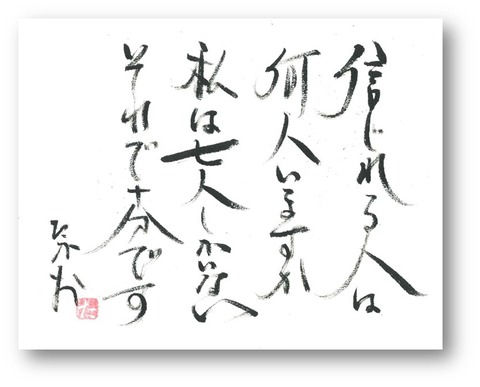 信じれる人は
何人いますか
私は七人しかいない
それで十分です